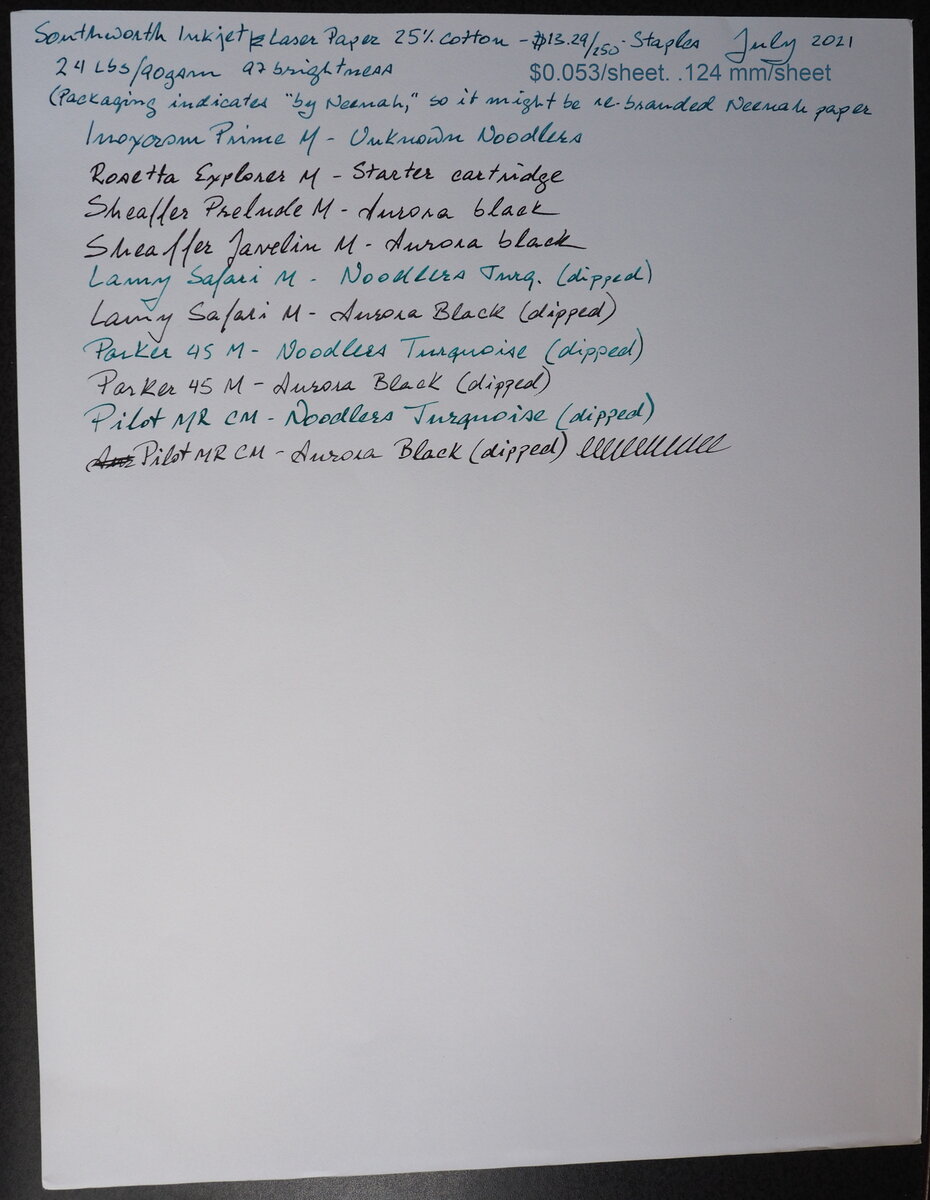 Southworth Inkjet & Laser Paper 25% cotton - $13.29/250 - Staples July 2021
24 Lbs/90gsm 97 brightness $0.053/sheet. .124 mm/sheet
(Packaging indicates "by Neenah," so it might be re-branded Neenah paper
Inoxcrom Prime M - Unknown Noodlers
Rosetta Explorer M - Starter cartridge
Sheaffer Prelude M - Aurora black
Sheaffer Javelin M - Aurora black
Lamy Safari M - Noodlers Turq. (dipped)
Lamy Safari M - Aurora Black (dipped)
Parker 45 M - Noodlers Turquoise (dipped)
Parker 45 M - Aurora Black (dipped)
Pilot MR CM - Noodlers Turquoise (dipped)
Pilot MR CM - Aurora Black (dipped)